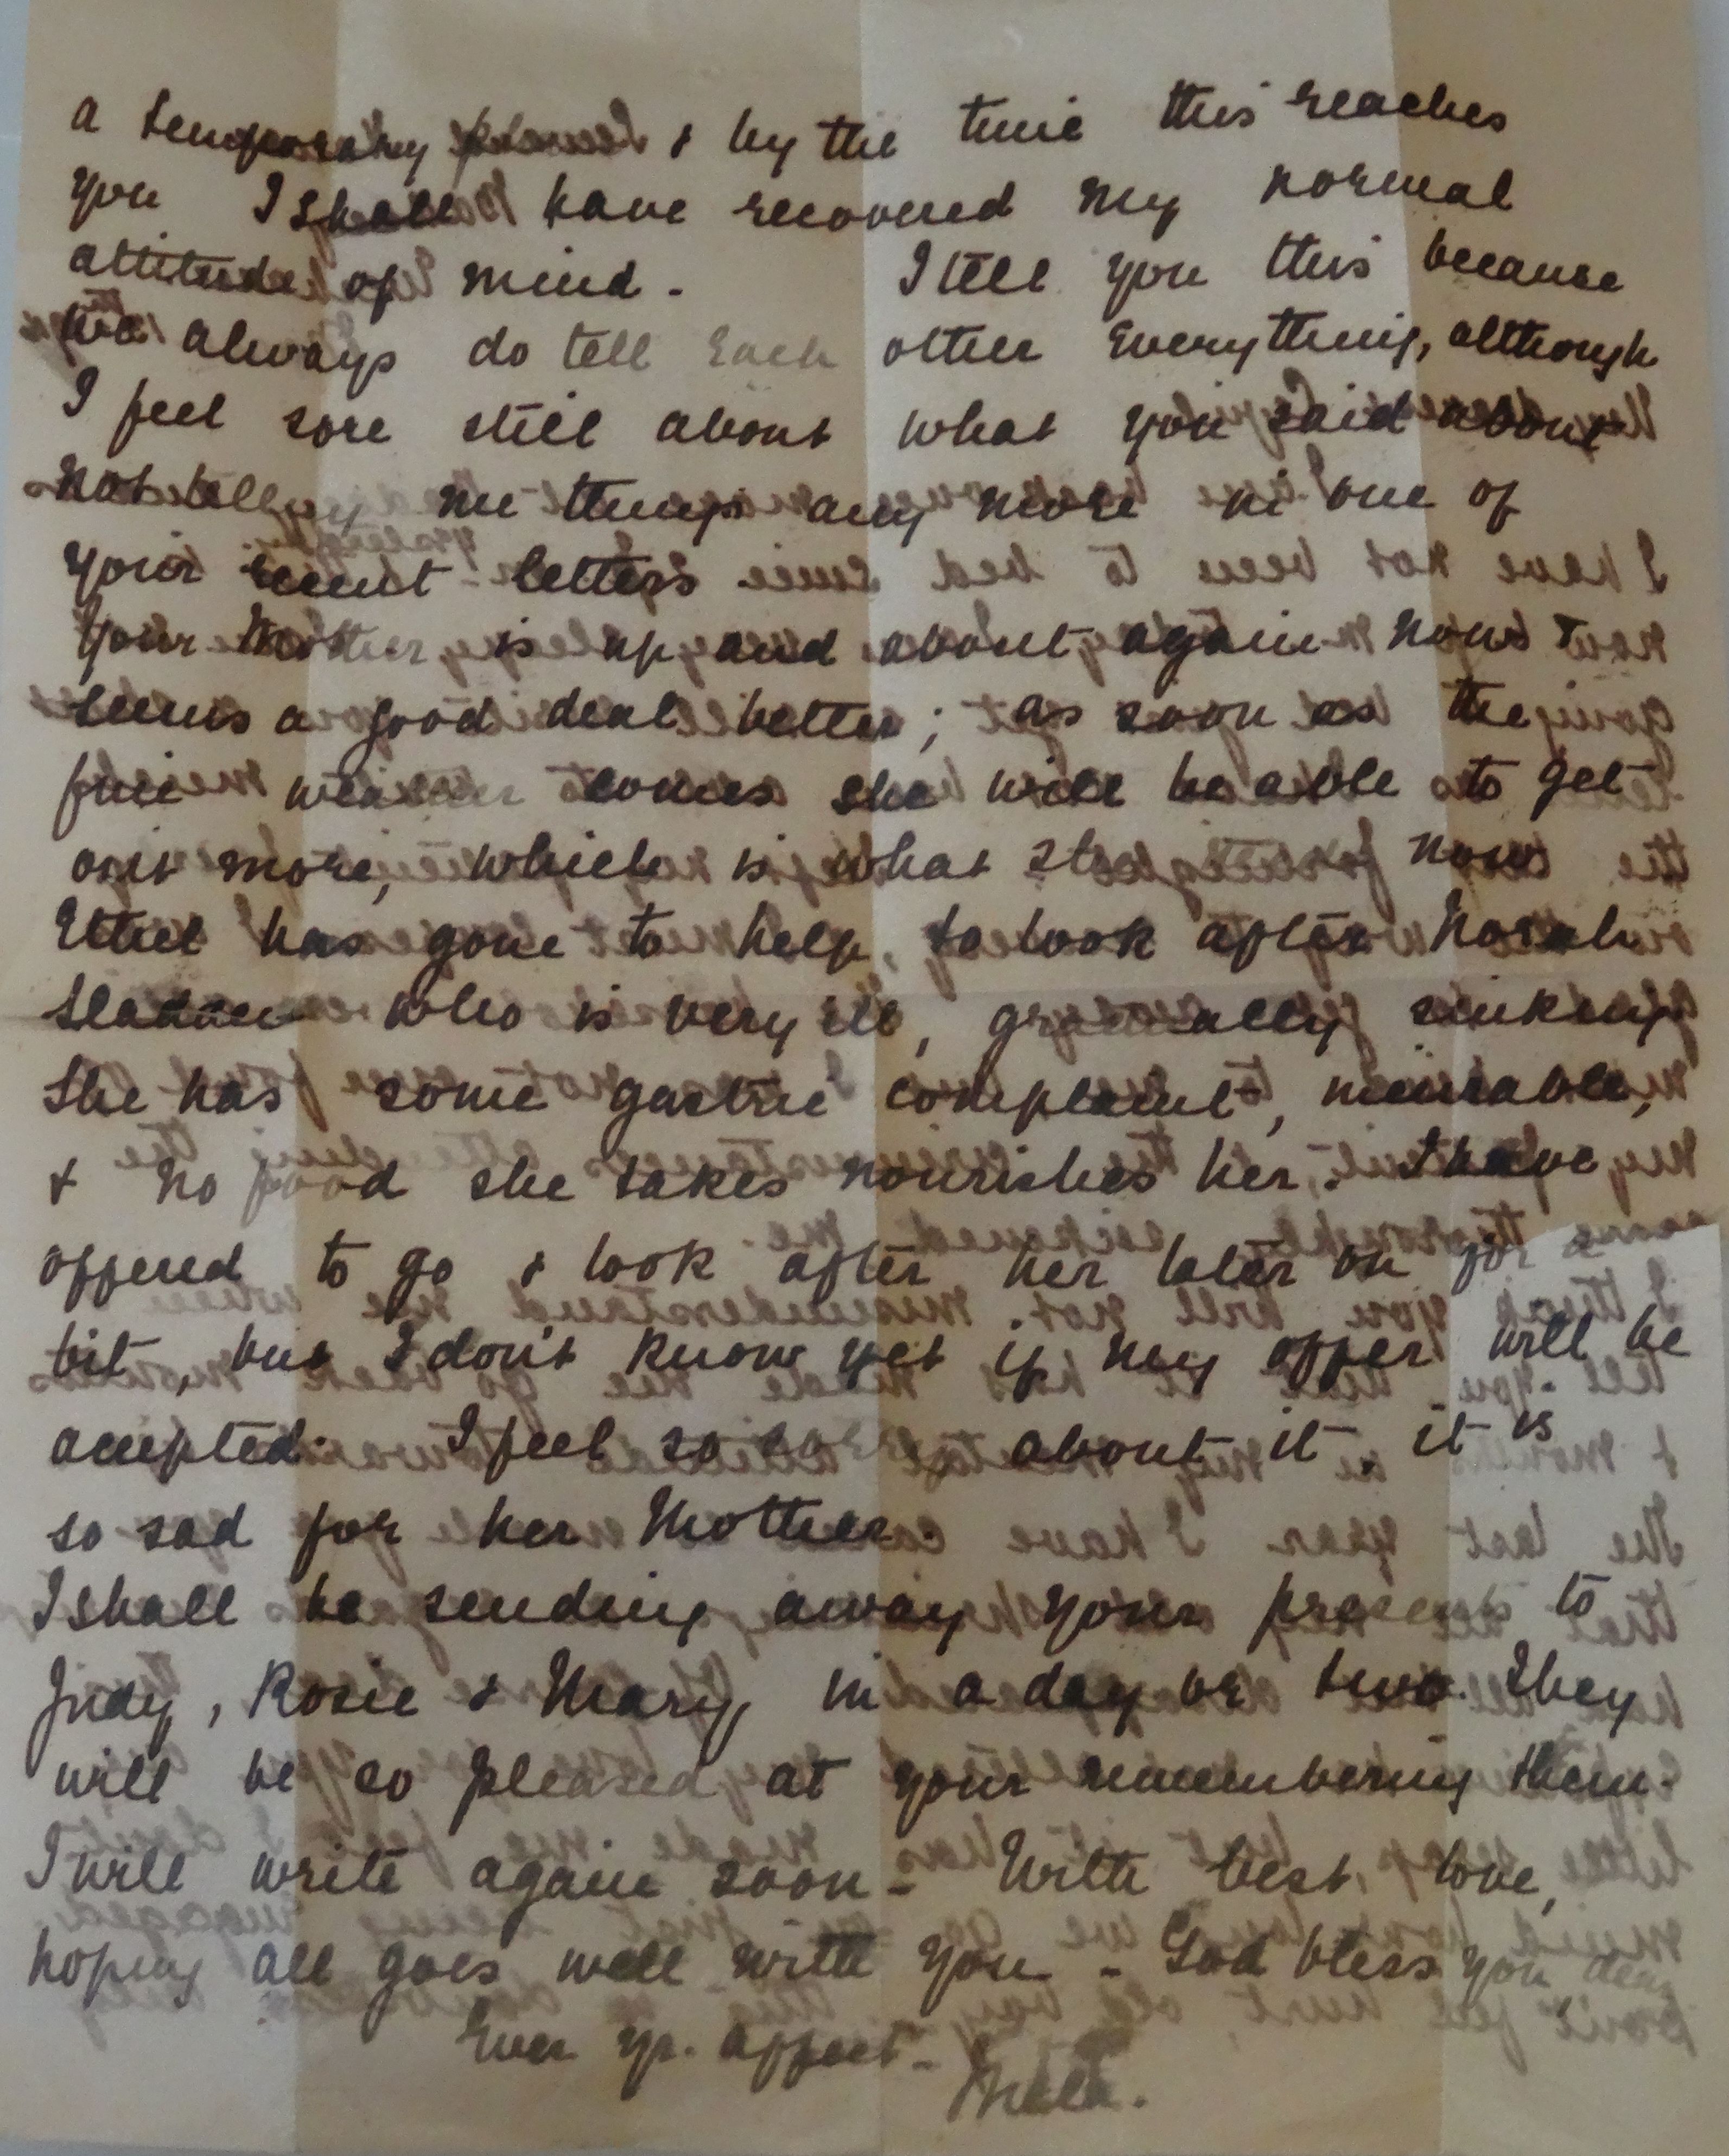 a temporary phase & by the time this reaches
you I shall have recovered my normal
attitude of mind. I tell you this because
we always do tell each other everything, although
I feel sore still about what you said about
not telling me things any more in one of
your recent letters.
Your Mother is up and about again now &
seems a good deal better; as soon as the
fine weather comes she will be able to get
out more, which is what she now
Ethel has gone to help, to look after Norah
who is very ill, gradually sinking
She has some gastric complaint, incurable,
& no food she takes nourishes her. I have
offered to go & look after her later on for a
bit, but I don't know yet if my offer will be
accepted. I feel so about it, it is
so sad for her Mother.
I shall be sending away your presents to
Judy, Rosie & Mary, in a day or two. They
will be so pleased at your remembering them.
I will write again soon - With best love,
hoping all goes well with you - God bless you dear
Ever yr. affect.